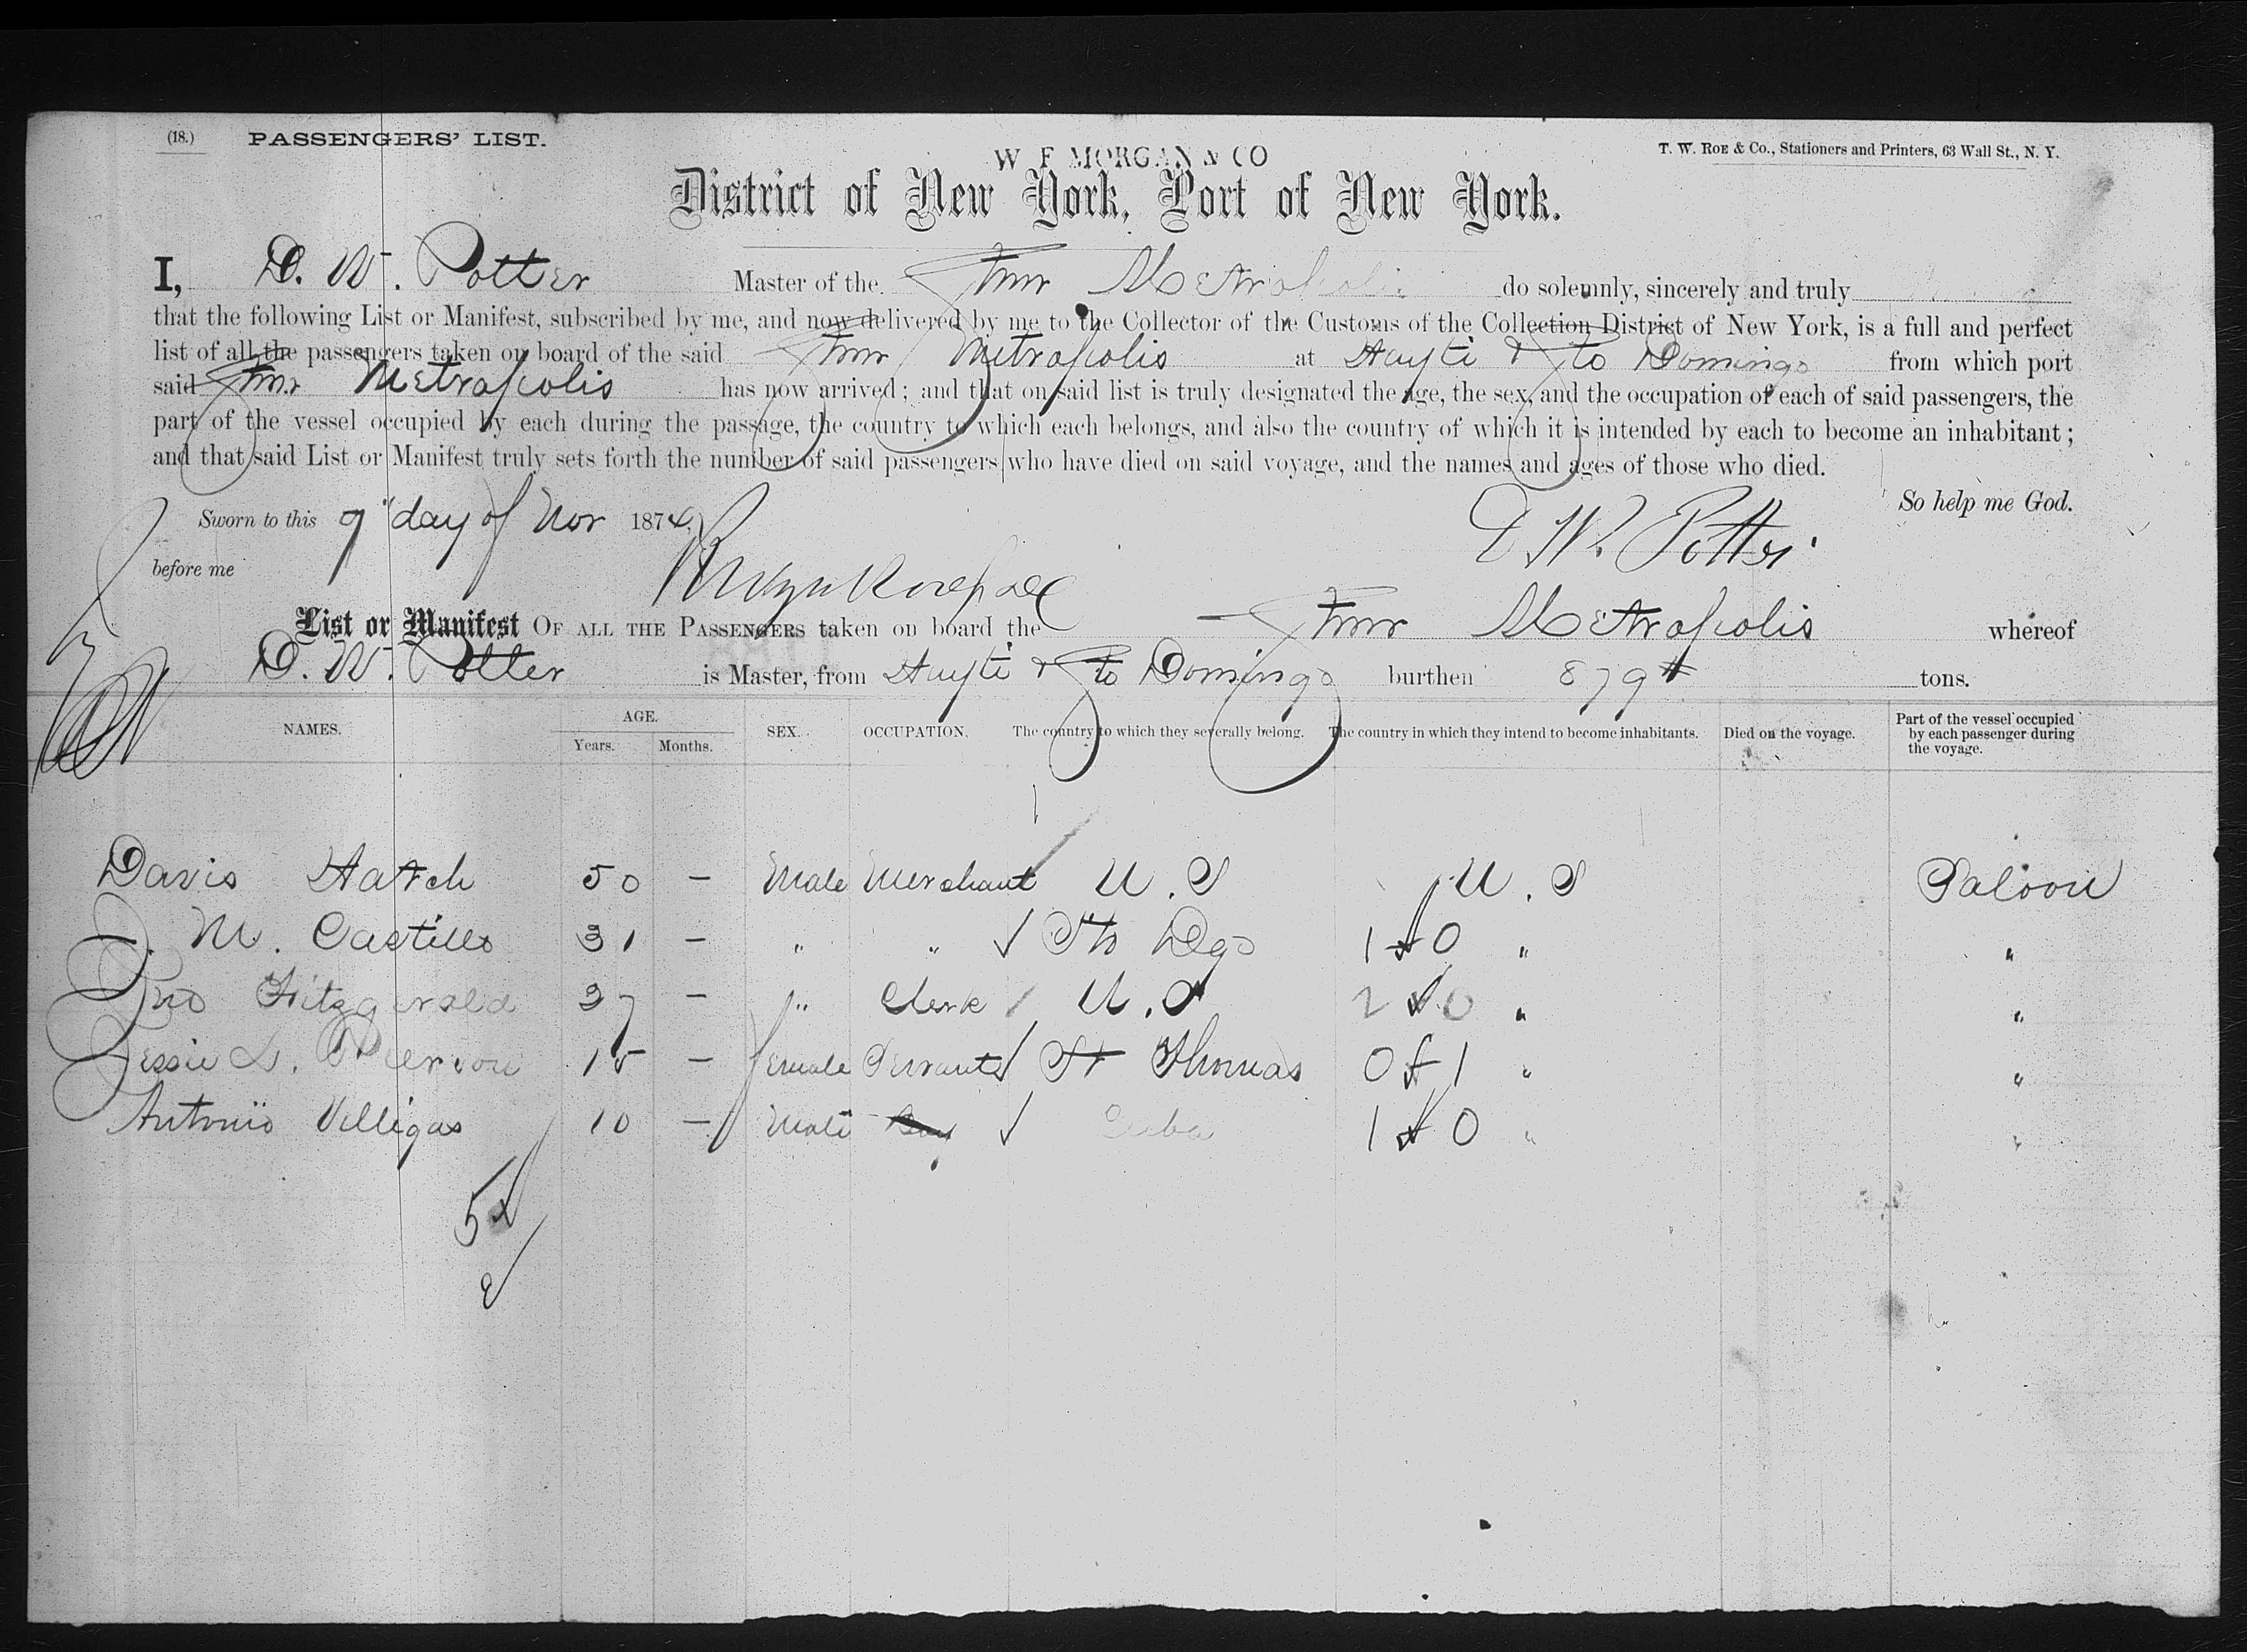 (18.) PASSENGERS' LIST.
W F MORGAN & CO
T. W. ROE & CO., Stationers and Printers, 63 Wall St., N. Y.
District of New York, Port of New York.
I, D. W. Potter Master of the Stmr Metropolis do solemnly, sincerely and truly
that the following List or Manifest, subscribed by me, and now delivered by me to the Collector of the Customs of the Collection District of New York, is a full and perfect
list of all the passengers taken on board of the said Stmr Metropolis at Hayti & Sto Domingo from which port
said Stmr Metropolis has now arrived; and that on said list is truly designated the age, the sex, and the occupation of each of said passengers, the
part of the vessel occupied by each during the passage, the country to which each belongs, and also the country of which it is intended by each to become an inhabitant;
and that said List or Manifest truly sets forth the number of said passengers who have died on said voyage, and the names and ages of those who died.
So help me God.
Sworn to this 9" day of Nov 1874,
D W. Potter
before me
List or Manifest OF ALL THE PASSENGERS taken on board the Stmr Metropolis whereof
D. W. Potter is Master, from Hayti & Sto Domingo burthen 879 tons.
NAMES. AGE. Years. Months. SEX. OCCUPATION. The country to which they severally belong. The country in which they intend to become inhabitants. Died on the voyage. Part of the vessel occupied by each passenger during the voyage.
Davis Hatch 50 — Male Merchant U. S U. S Saloon
J. M. Castillo 31 — " " Sto Dgo 1 0 " "
Jno Fitzgerald 37 — " Clerk U. S 2 0 " "
Jessie L. 15 — Female Servant St Thomas 0 1 " "
Antonio Villigas 10 — Male Boy Cuba 1 0 " "
5